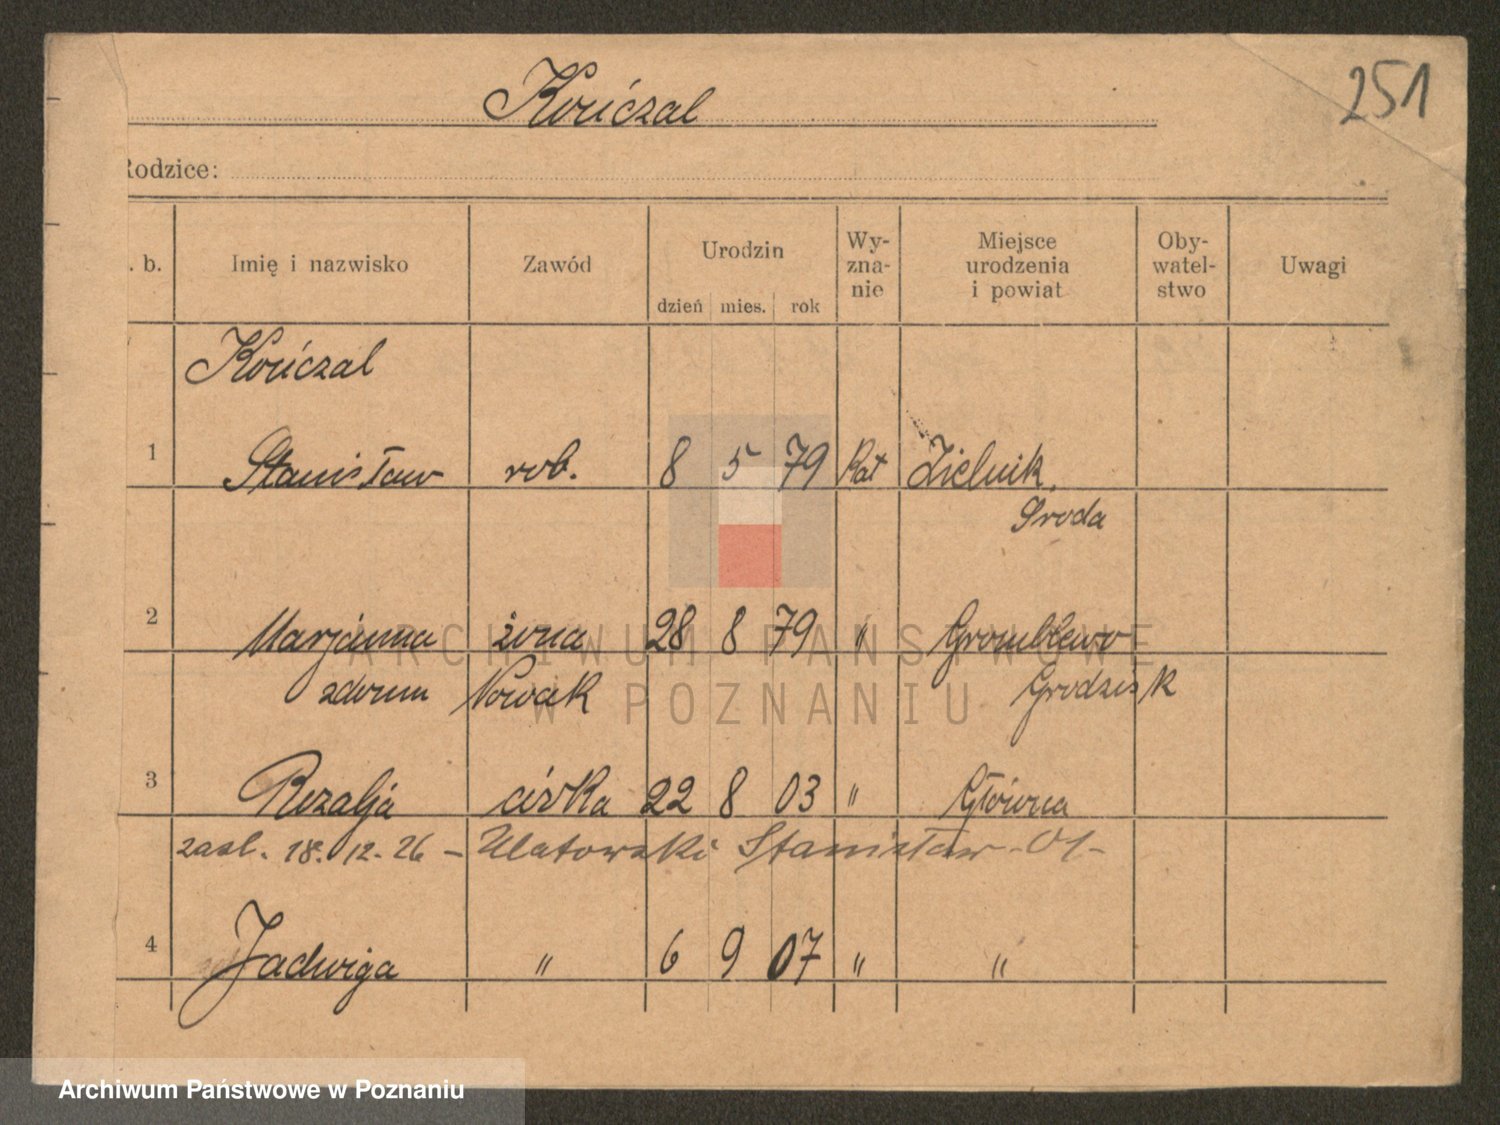 Kończal
251
Rodzice:
. b. Imię i nazwisko Zawód Urodzin dzień mies. rok Wy-zna-nie Miejsce urodzenia i powiat Oby-watel-stwo Uwagi
Kończal
1 Stanisław rob. 8 5 79 Kat Zielnik,
Środa
2 Marjanna żona 28 8 79 " Gromblewo
zdomu Nowak Grodzisk
3 Rozalja córka 22 8 03 " Główna
zasl. 18.12.26 – Ulatowski Stanisław – 01 –
4 Jadwiga " 6 9 07 " "
ARCHIWUM PAŃSTWOWE
W POZNANIU
Archiwum Państwowe w Poznaniu